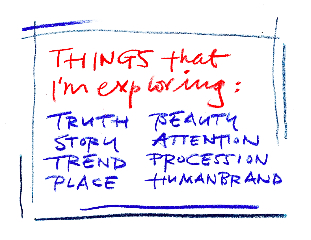 THINGS that
I'm exploring:
TRUTH BEAUTY
STORY ATTENTION
TREND PROCESSION
PLACE HUMANBRAND